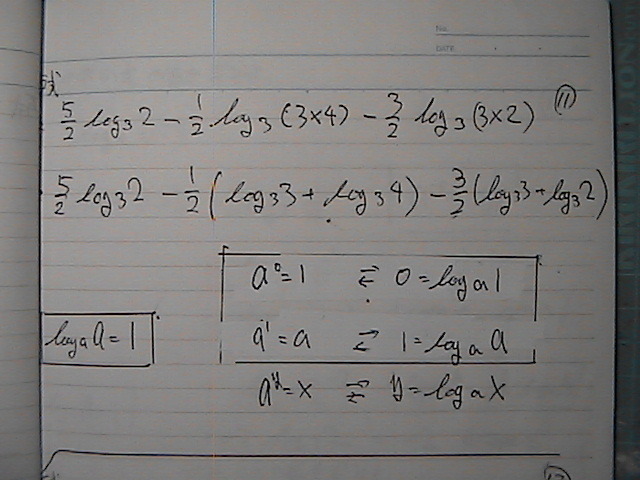 NO.
DATE
式
5/2 log₃2 − 1/2 log₃(3×4) − 3/2 log₃(3×2) ⑪
5/2 log₃2 − 1/2 (log₃3 + log₃4) − 3/2 (log₃3 + log₃2)
a⁰=1 ⇄ 0=logₐ1
logₐa=1
a¹=a ⇄ 1=logₐa
aʸ=x ⇄ y=logₐx